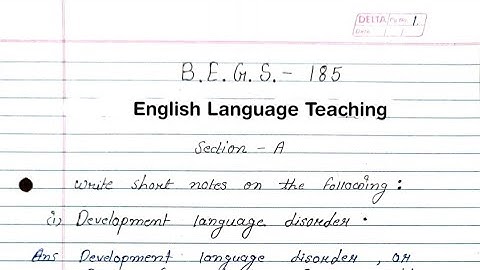 DELTA Pg No. 1
Date / /
B.E.G.S. - 185
English Language Teaching
Section - A
Write short notes on the following :
(i) Development language disorder .
Ans Development language disorder , or